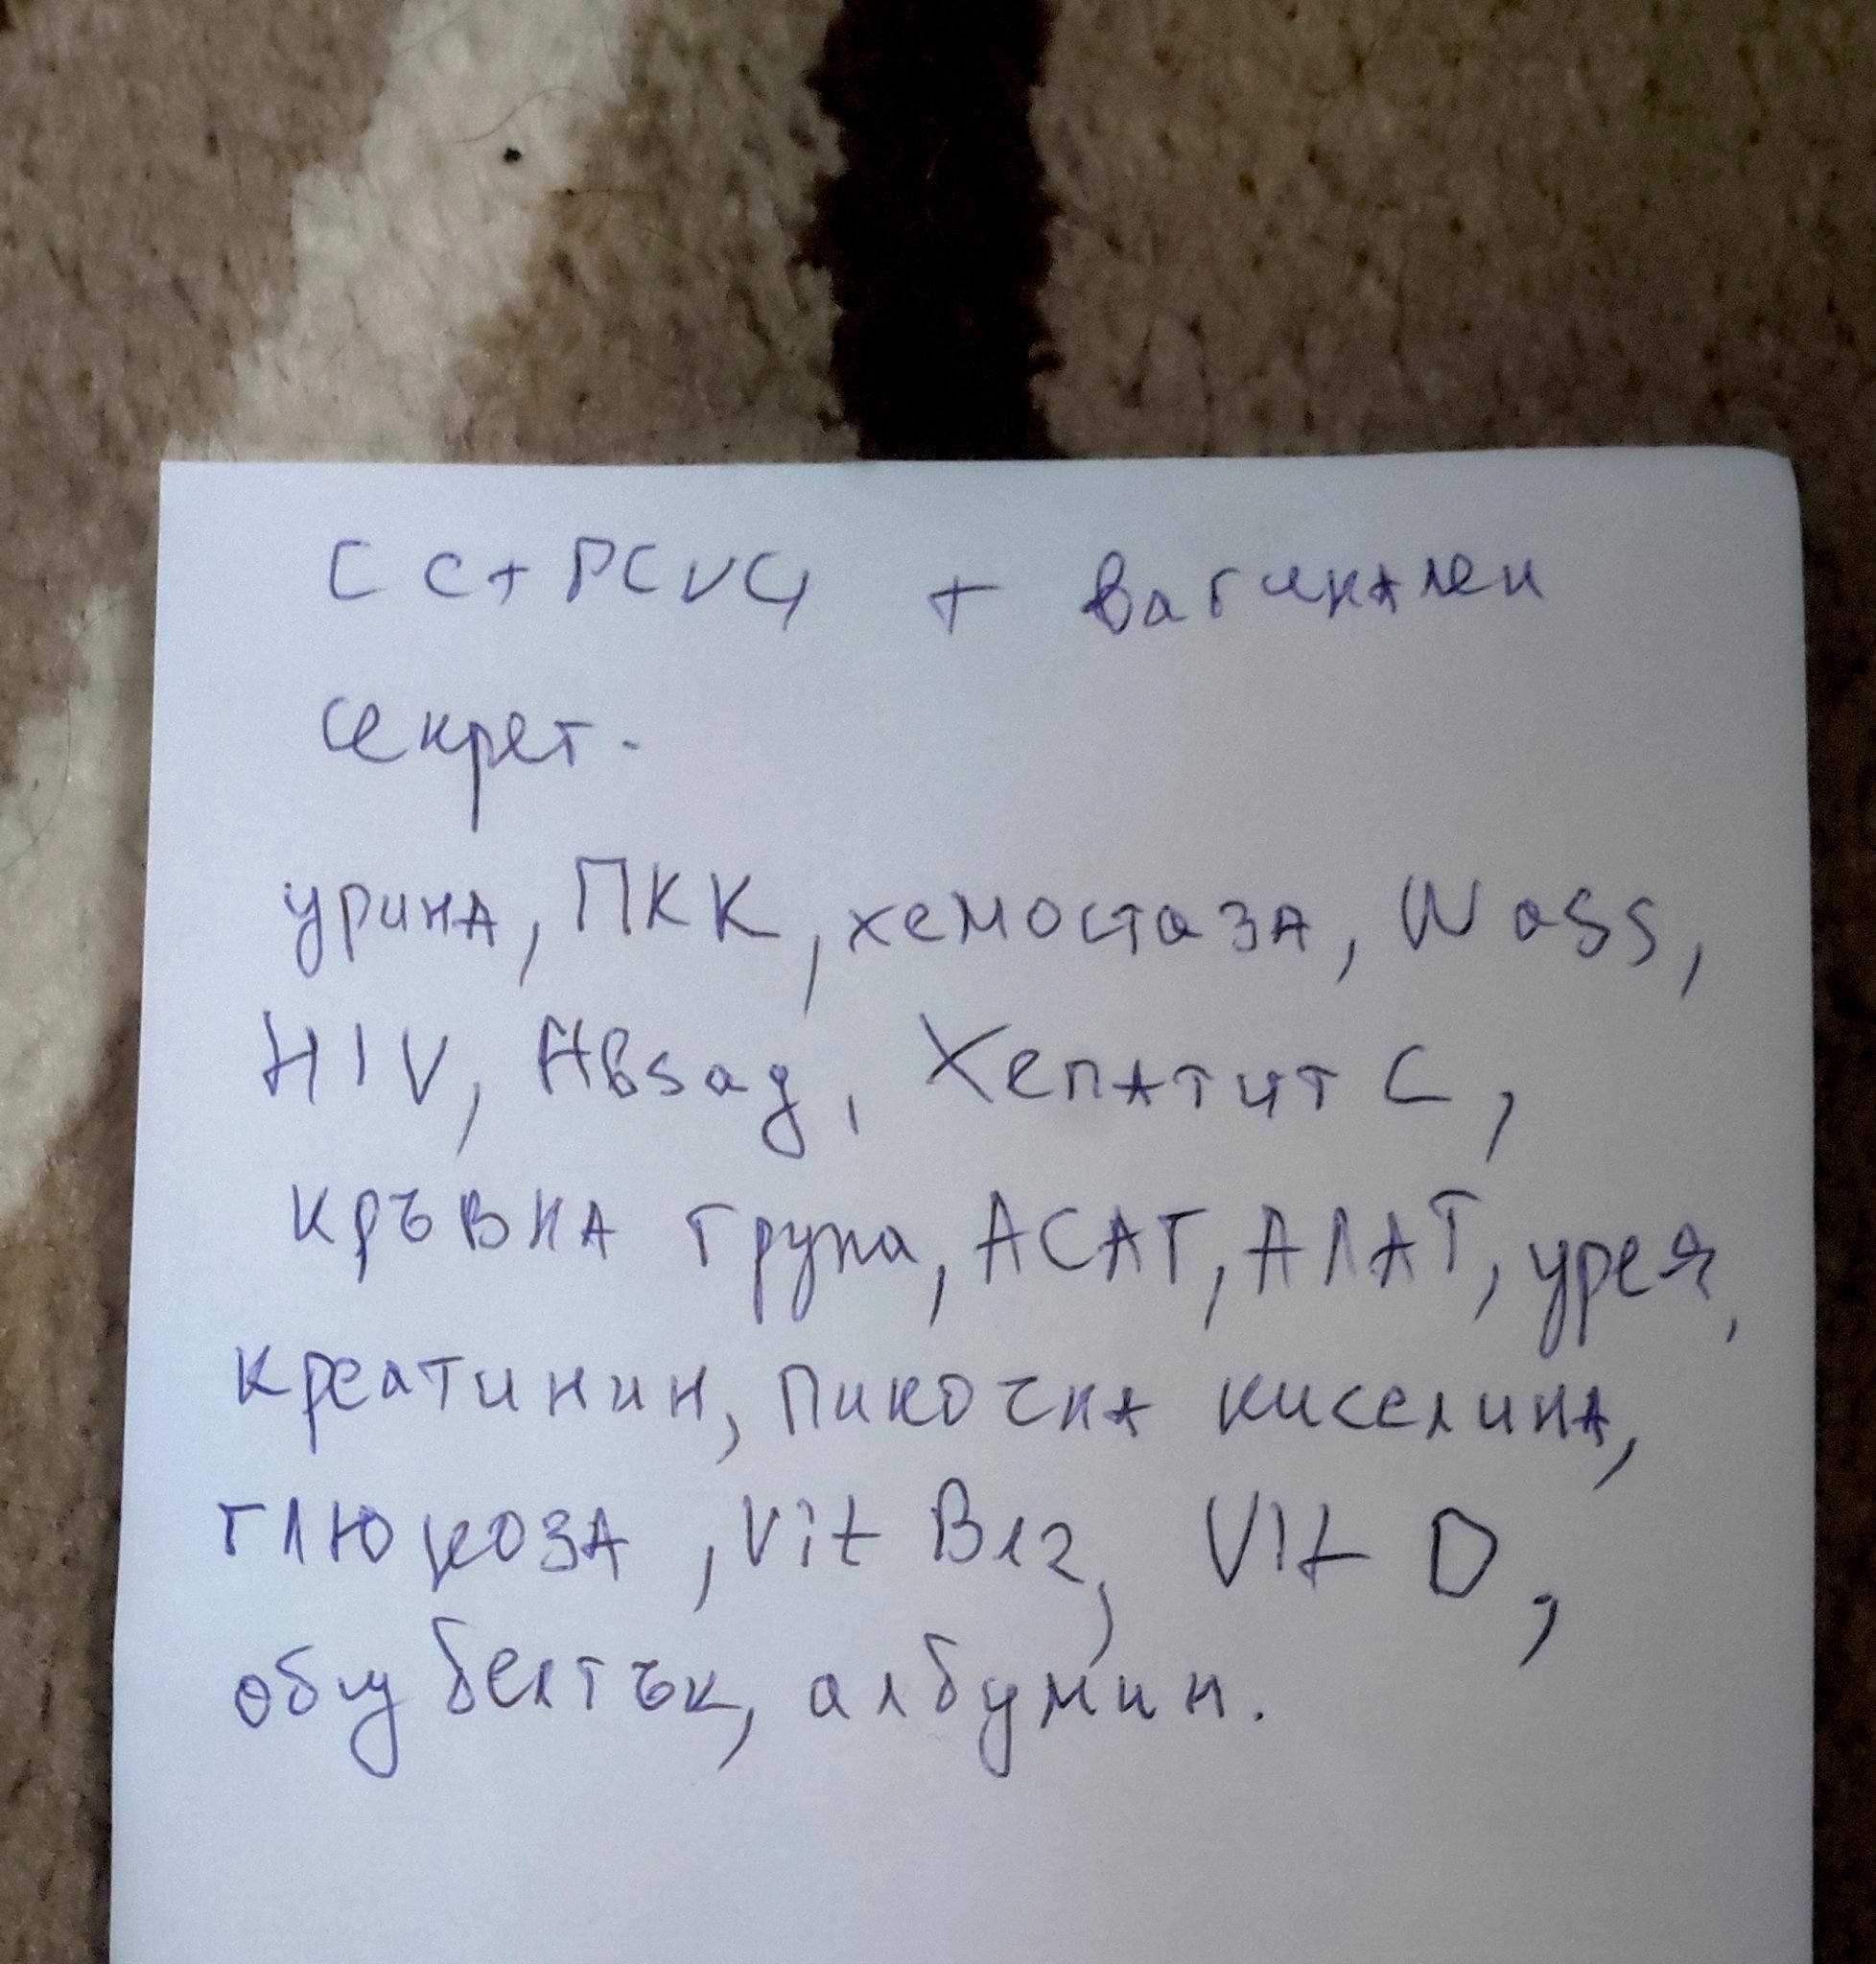 СС + PCVG + вагинален
секрет.
урина, ПКК, хемостаза, Wass,
HIV, HBsag, Хепатит С,
кръвна група, АСАТ, АЛАТ, урея,
креатинин, пикочна киселина,
глюкоза, Vit B12, Vit D,
общ белтък, албумин.